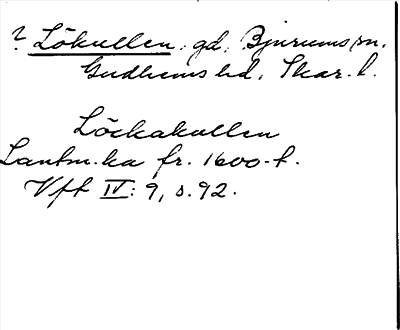 ? Lökullen, gd, Bjurums sn.
Gudhems hd, Skar. l.
Löckakullen
Lantm.ka fr. 1600-t.
Vff IV: 9, s. 92.